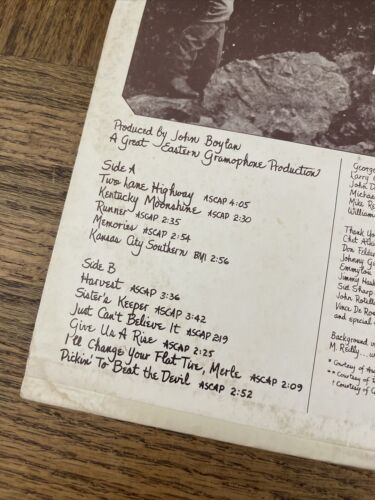 Produced by John Boylan
A Great Eastern Gramophone Production
Side A
Two Lane Highway ASCAP 4:05
Kentucky Moonshine ASCAP 2:30
Runner ASCAP 2:35
Memories ASCAP 2:54
Kansas City Southern BMI 2:56
Side B
Harvest ASCAP 3:36
Sister's Keeper ASCAP 3:42
Just Can't Believe It ASCAP 2:19
Give Us A Rise ASCAP 2:25
I'll Change Your Flat Tire, Merle ASCAP 2:09
Pickin' To Beat the Devil ASCAP 2:52
George
Larry
John D
Michael
Mike
William
Thank You
Chet
Don
Johnny
Emmylou
Jimmy
Sid Sharp
John
Vince
and special
Background
M. Reilly...
* Courtesy of
** Courtesy of
† Courtesy of